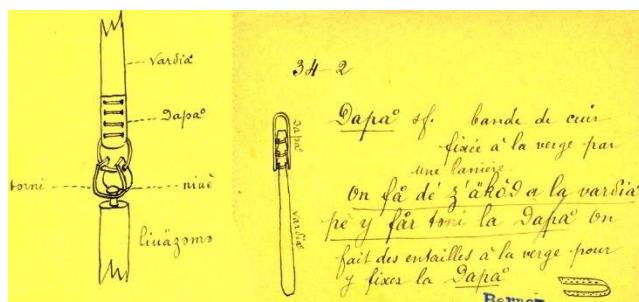 vardia
dapaº
torni
niuè
liuäzomo
34-2
dapaº
vardia
Dapaº sf. bande de cuir
fixée à la verge par
une lanière
On få dé z'äkòd a la vardia
pè y får toni la Dapaº on
fait des entailles à la verge pour
y fixer la Dapaº